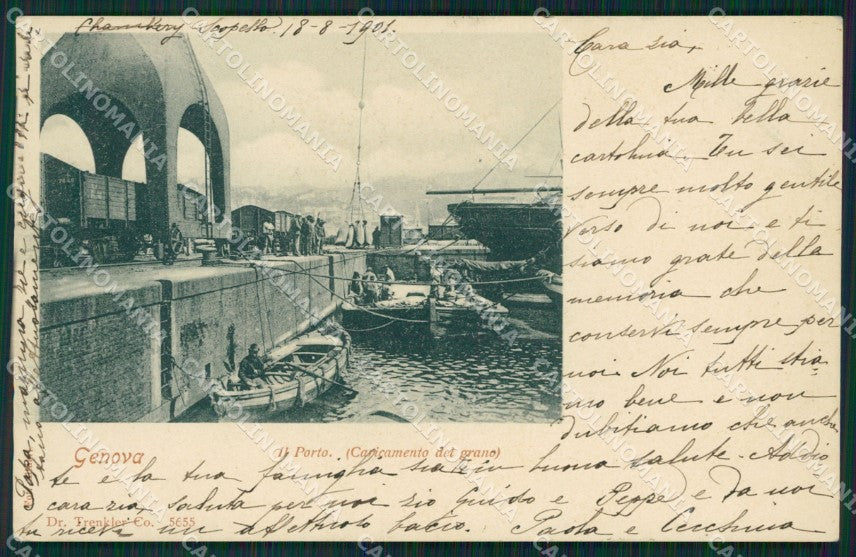 Chambery Scopello. 18-8-1901.
Cara zia,
Mille grazie
della tua bella
cartolina. Tu sei
sempre molto gentile
verso di noi e ti
siamo grate della
memoria che
conservi sempre per
noi. Noi tutti stia-
mo bene e non
dubitiamo che anche
te e la tua famiglia siate in buona salute. Addio
cara zia, saluta per noi zio Guido e Peppe e da noi
tu ricevi un affettuoso bacio. Paola e Cecchina
Papa mamma
Genova
Il Porto. (Caricamento del grano)
Dr. Trenkler Co. 5655
CARTOLINOMANIA